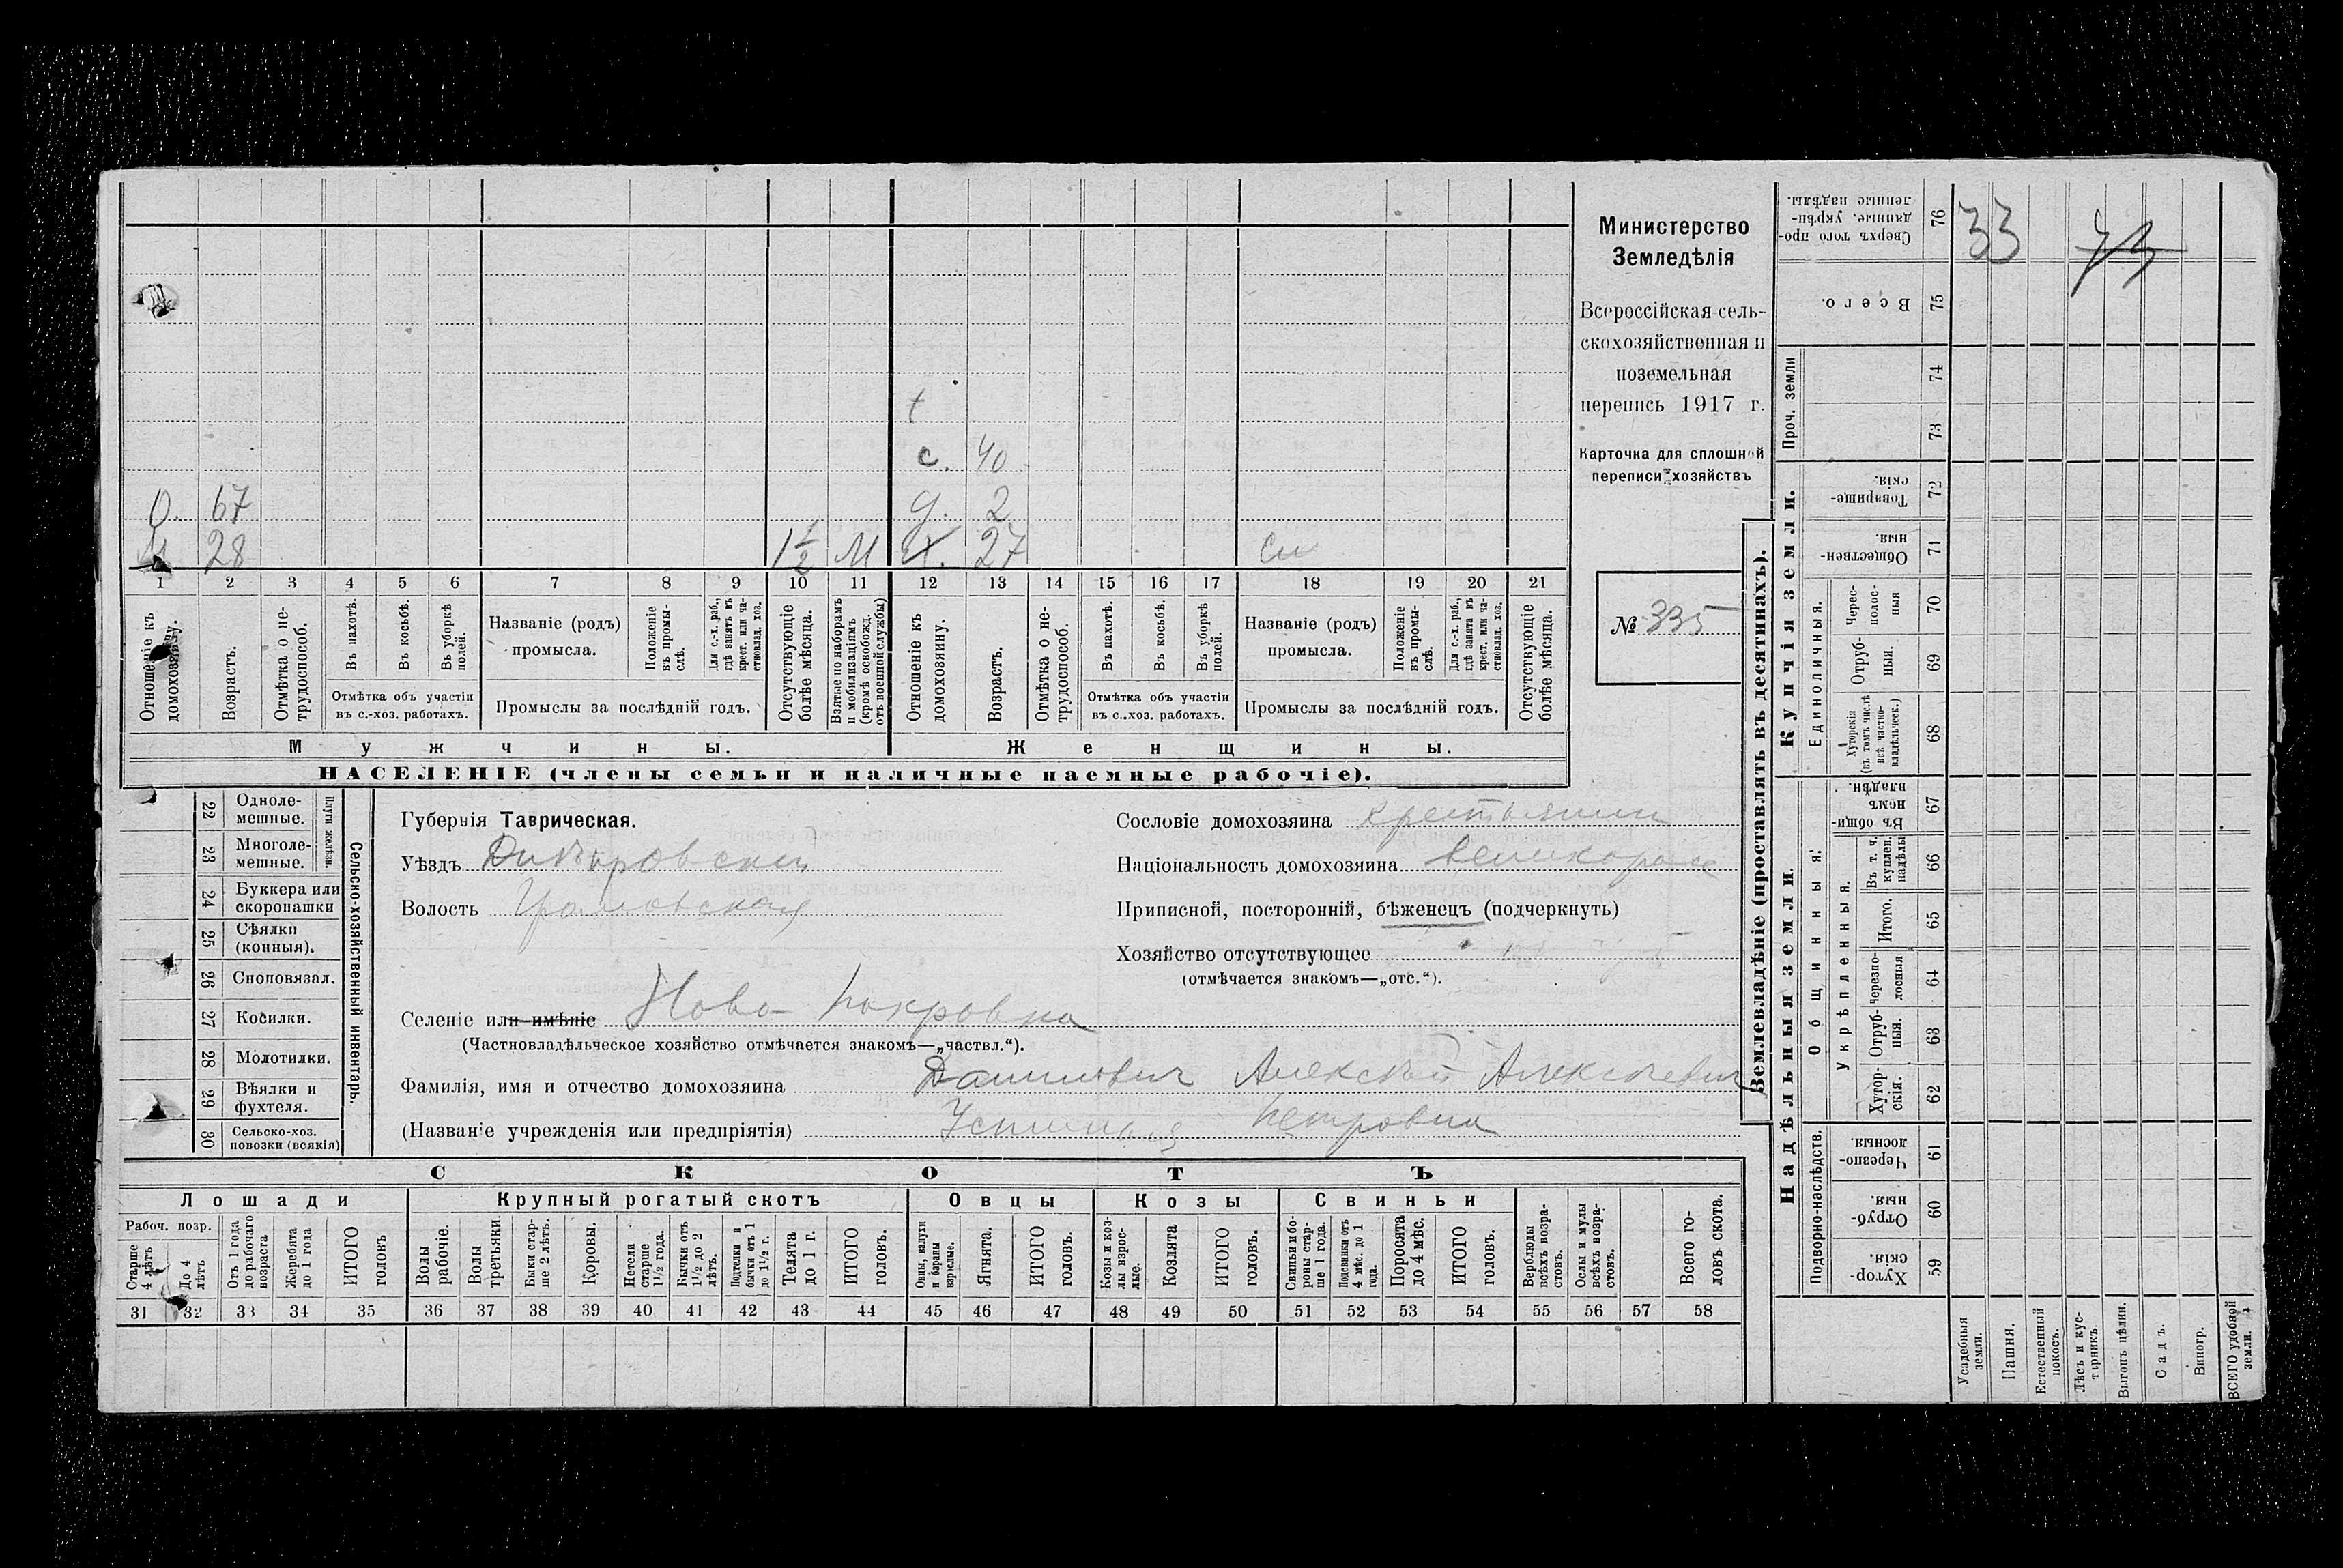 Министерство
Земледѣлія
Всероссійская сель-
скохозяйственная и
поземельная
перепись 1917 г.
Карточка для сплошной
переписи хозяйствъ
№ 335
t
с. 40
О. 67
д. 2
28
1 1/2 М
27
1 2 3 4 5 6 7 8 9 10 11 12 13 14 15 16 17 18 19 20 21
Отношеніе къ домохозяину.
Возрастъ.
Отмѣтка о не-трудоспособ.
Въ пахотѣ.
Въ косьбѣ.
Въ уборкѣ полей.
Отмѣтка объ участіи
въ с.-хоз. работахъ.
Названіе (родъ)
промысла.
Положеніе въ промы-слѣ.
Для с.-х. раб., гдѣ занятъ въ крест. или ча-ствовлад. хоз.
Промыслы за послѣдній годъ.
Отсутствующіе болѣе мѣсяца.
Взятые по наборамъ и мобилизаціямъ (кромѣ освобожд. отъ военной службы)
Отношеніе къ домохозяину.
Возрастъ.
Отмѣтка о не-трудоспособ.
Въ пахотѣ.
Въ косьбѣ.
Въ уборкѣ полей.
Отмѣтка объ участіи
въ с.-хоз. работахъ.
Названіе (родъ)
промысла.
Положеніе въ промы-слѣ.
Для с.-х. раб., гдѣ занята въ крест. или ча-ствовлад. хоз.
Промыслы за послѣдній годъ.
Отсутствующіе болѣе мѣсяца.
Мужчины.
Женщины.
НАСЕЛЕНІЕ (члены семьи и наличные наемные рабочіе).
Сельско-хозяйственный инвентарь.
Плуги желѣзн.
22 Одноле-мешные.
23 Многоле-мешные.
24 Буккера или скоропашки
25 Сѣялки (конныя).
26 Сноповязал.
27 Косилки.
28 Молотилки.
29 Вѣялки и фухтеля.
30 Сельско-хоз. повозки (всякія)
Губернія Таврическая.
Уѣздъ Днѣпровскій
Волость
Селеніе или имѣніе Ново Покровка
(Частновладѣльческое хозяйство отмѣчается знакомъ—„частвл.“).
Фамилія, имя и отчество домохозяина Данилович Алексѣй Алексѣевич
(Названіе учрежденія или предпріятія) Петровна
Сословіе домохозяина крестьянин
Національность домохозяина великоросс
Приписной, посторонній, бѣженецъ (подчеркнуть)
Хозяйство отсутствующее
(отмѣчается знакомъ—„отс.“).
СКОТЪ
Лошади
Рабоч. возр.
Старше 4 лѣтъ
До 4 лѣтъ
Отъ 1 года до рабочаго возраста
Жеребята до 1 года
ИТОГО головъ
Крупный рогатый скотъ
Волы рабочіе.
Волы третьяки.
Быки стар-ше 2 лѣтъ.
Коровы.
Нетели старше 1½ года.
Бычки отъ 1½ до 2 лѣтъ.
Подтелки и бычки отъ 1 до 1½ г.
Телята до 1 г.
ИТОГО головъ.
Овцы
Овцы, валухи и бараны взрослые.
Ягнята.
ИТОГО головъ.
Козы
Козы и коз-лы взрос-лые.
Козлята
ИТОГО головъ.
Свиньи
Свиньи и бо-ровы стар-ше 1 года.
Подсвинки отъ 4 мѣс. до 1 года.
Поросята до 4 мѣс.
ИТОГО головъ.
Верблюды всѣхъ возра-стовъ.
Ослы и мулы всѣхъ возра-стовъ.
Всего го-ловъ скота.
31 32 33 34 35 36 37 38 39 40 41 42 43 44 45 46 47 48 49 50 51 52 53 54 55 56 57 58
Землевладѣніе (проставлять въ десятинахъ).
Купчія земли.
Надѣльныя земли.
76 Сверхъ того про-данные, укрѣп-ленные надѣлы.
33
75 Всего.
Проч. земли
74
73
72 Товарище-скія.
71 Обществен-ныя.
Единоличныя.
70 Черес-полос-ныя
69 Отруб-ныя.
68 Хуторскія (въ томъ числѣ всѣ частно-владѣльческ.)
Общинныя.
67 Въ общин-номъ владѣн.
Укрѣпленныя.
66 Въ т. ч. куплен. надѣлы
65 Итого.
64 Черезпо-лосныя
63 Отруб-ныя.
62 Хутор-скія.
Подворно-наслѣдств.
61 Черезпо-лосныя.
60 Отруб-ныя.
59 Хутор-скія.
Усадебныя земли.
Пашня.
Естественный покосъ.
Лѣсъ и кус-тарникъ.
Выгонъ цѣлин.
Садъ.
Виногр.
ВСЕГО удобной земли.